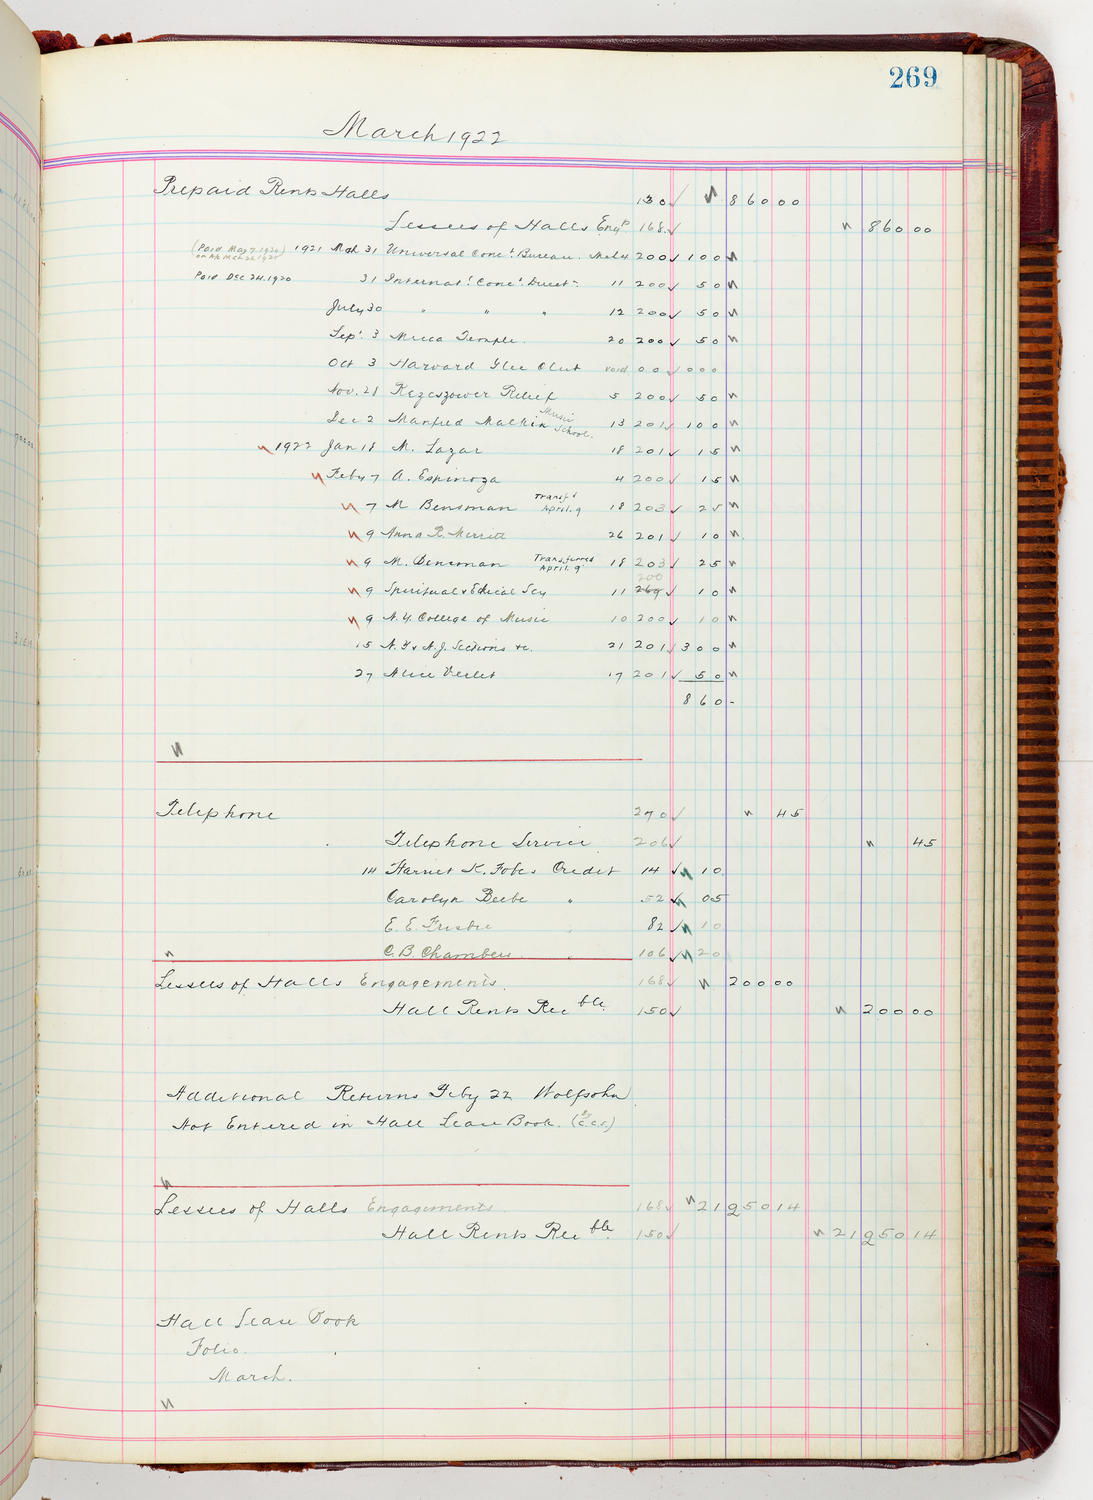 269
March 1922
Prepaid Rents Halls 130 ✓ 860 00
Lessees of Halls Engs 168 ✓ 860 00
(Paid May 7. 1920) 1921 Mch 31 Universal Conct. Bureau. 200 ✓ 100
Paid Dec 24. 1920 31 Internatl. Conct. Direct 11 200 ✓ 50
July 30 " " " 12 200 ✓ 50
Sept. 3 Mecca Temple. 20 200 ✓ 50
Oct 3 Harvard Glee Club void 00 ✓ 000
Nov. 21 Relief 5 200 ✓ 50
Dec 2 Manfred Malkin Music School. 13 201 ✓ 100
1922 Jan 18 M. Lazar 18 201 ✓ 15
Feby 7 A. Espinoza 4 200 ✓ 15
7 M Bensman Transfd April. 9 18 203 ✓ 25
9 Anna R. Merritt 26 201 ✓ 10
9 M. Bensman Transferred April. 9 18 203 ✓ 25
200
9 Spiritual & Ethical Scy 11 269 ✓ 10
9 N.Y. College of Music 10 200 ✓ 10
15 N.Y & N.J. Sections &c. 21 201 ✓ 300
27 Alice Verlet 17 201 ✓ 50
860 -
Telephone 270 ✓ 45
Telephone Service 206 ✓ 45
14 Harriet K. Fobes Credit 14 ✓ 10
Carolyn Beebe " 52 ✓ 05
E. E. Frisbie " 82 ✓ 10
C. B. Chambers " 106 ✓ 20
Lessees of Halls Engagements. 168 ✓ 200 00
Hall Rents Recble. 150 ✓ 200 00
Additional Returns Feby 22 Wolfsohn
Not Entered in Hall Lease Book. (by C.C.S.)
Lessees of Halls Engagements. 168 ✓ 21950 14
Hall Rents Recble. 150 ✓ 21950 14
Hall Lease Book
Folio.
March.